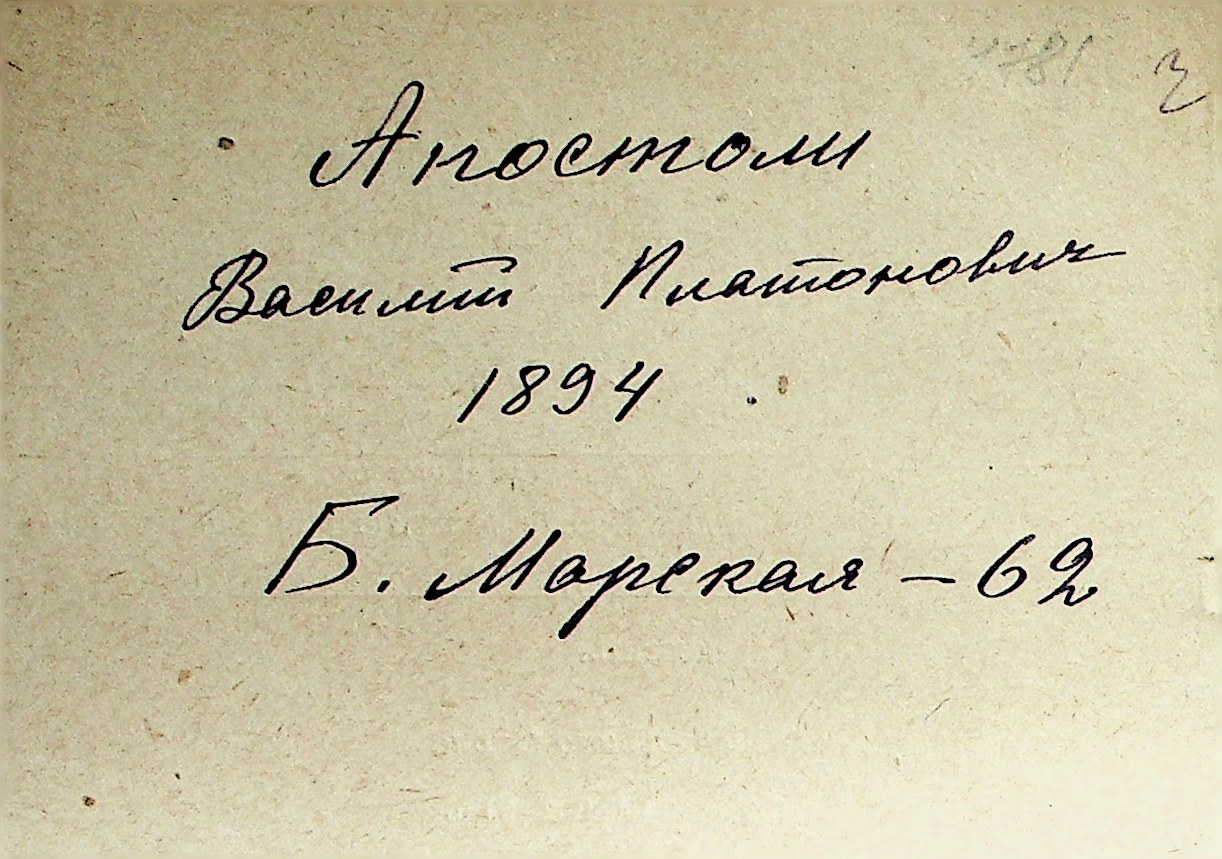 Апостоли
Василий Платонович
1894
Б. Морская - 62